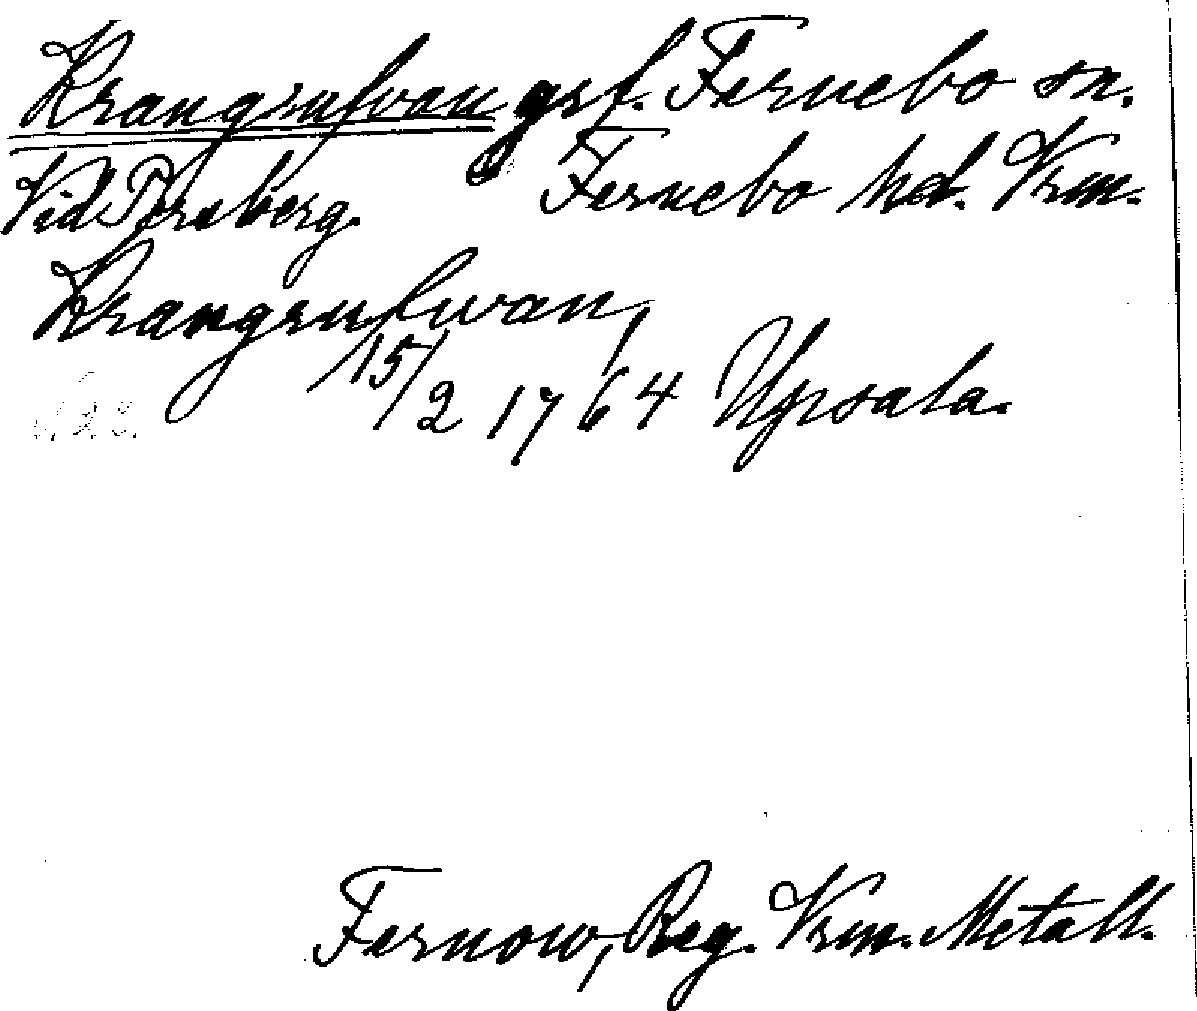 Krangrufvan gsf. Fernebo sn.
Vid Persberg. Fernebo hd. Vrm.
Krangrufwan,
15/2 1764 Upsala.
Fernow, Reg. Vrm. Metall.